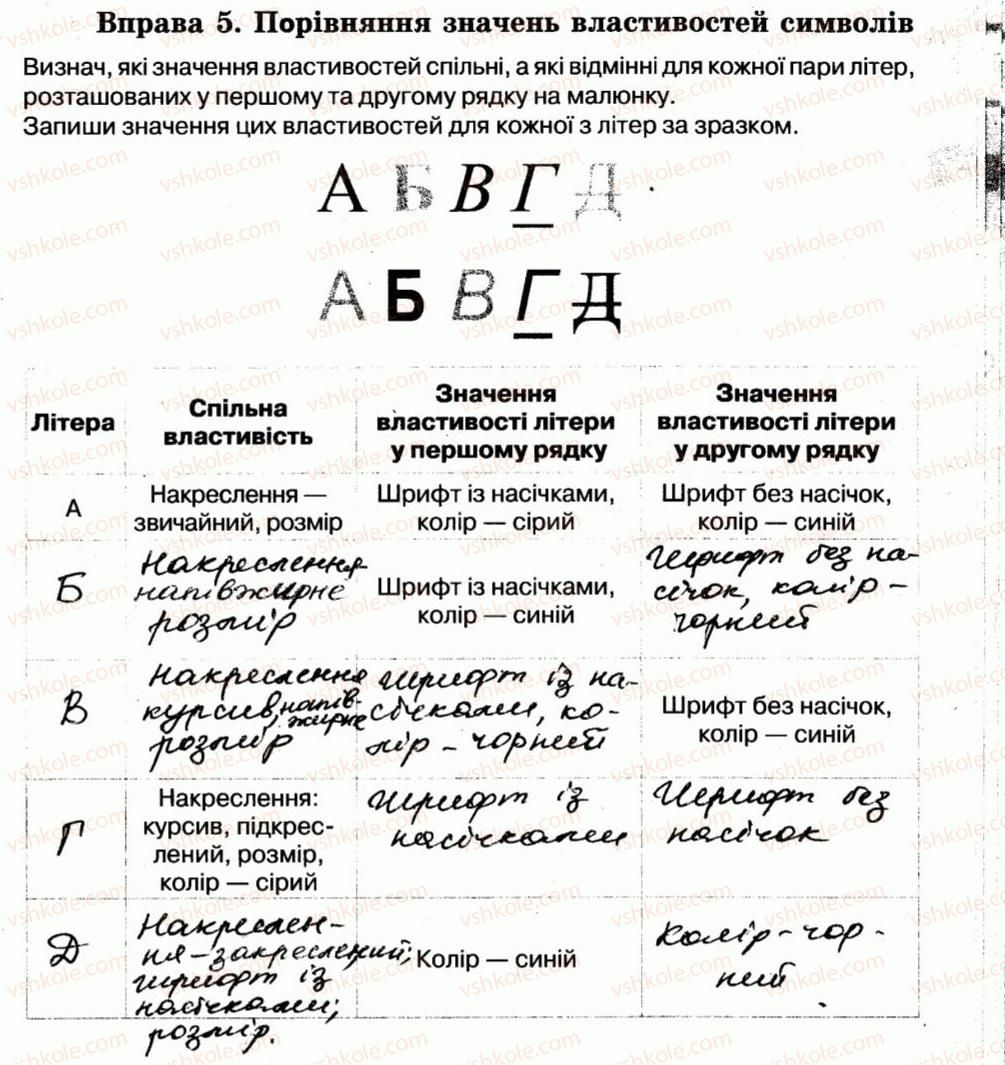 Вправа 5. Порівняння значень властивостей символів
Визнач, які значення властивостей спільні, а які відмінні для кожної пари літер,
розташованих у першому та другому рядку на малюнку.
Запиши значення цих властивостей для кожної з літер за зразком.
А Б В Г Д
А Б В Г Д
Літера
Спільна
властивість
Значення
властивості літери
у першому рядку
Значення
властивості літери
у другому рядку
А
Накреслення —
звичайний, розмір
Шрифт із насічками,
колір — сірий
Шрифт без насічок,
колір — синій
Б
Накреслення
напівжирне
розмір
Шрифт із насічками,
колір — синій
Шрифт без на-
січок, колір -
чорний
В
Накреслення
курсив, напів-
жирне
розмір
Шрифт із на-
січками, ко-
лір - чорний
Шрифт без насічок,
колір — синій
Г
Накреслення:
курсив, підкрес-
лений, розмір,
колір — сірий
Шрифт із
насічками
Шрифт без
насічок
Д
Накреслен-
ня - закреслений,
шрифт із
насічками,
розмір.
Колір — синій
Колір - чор-
ний
vshkole.com